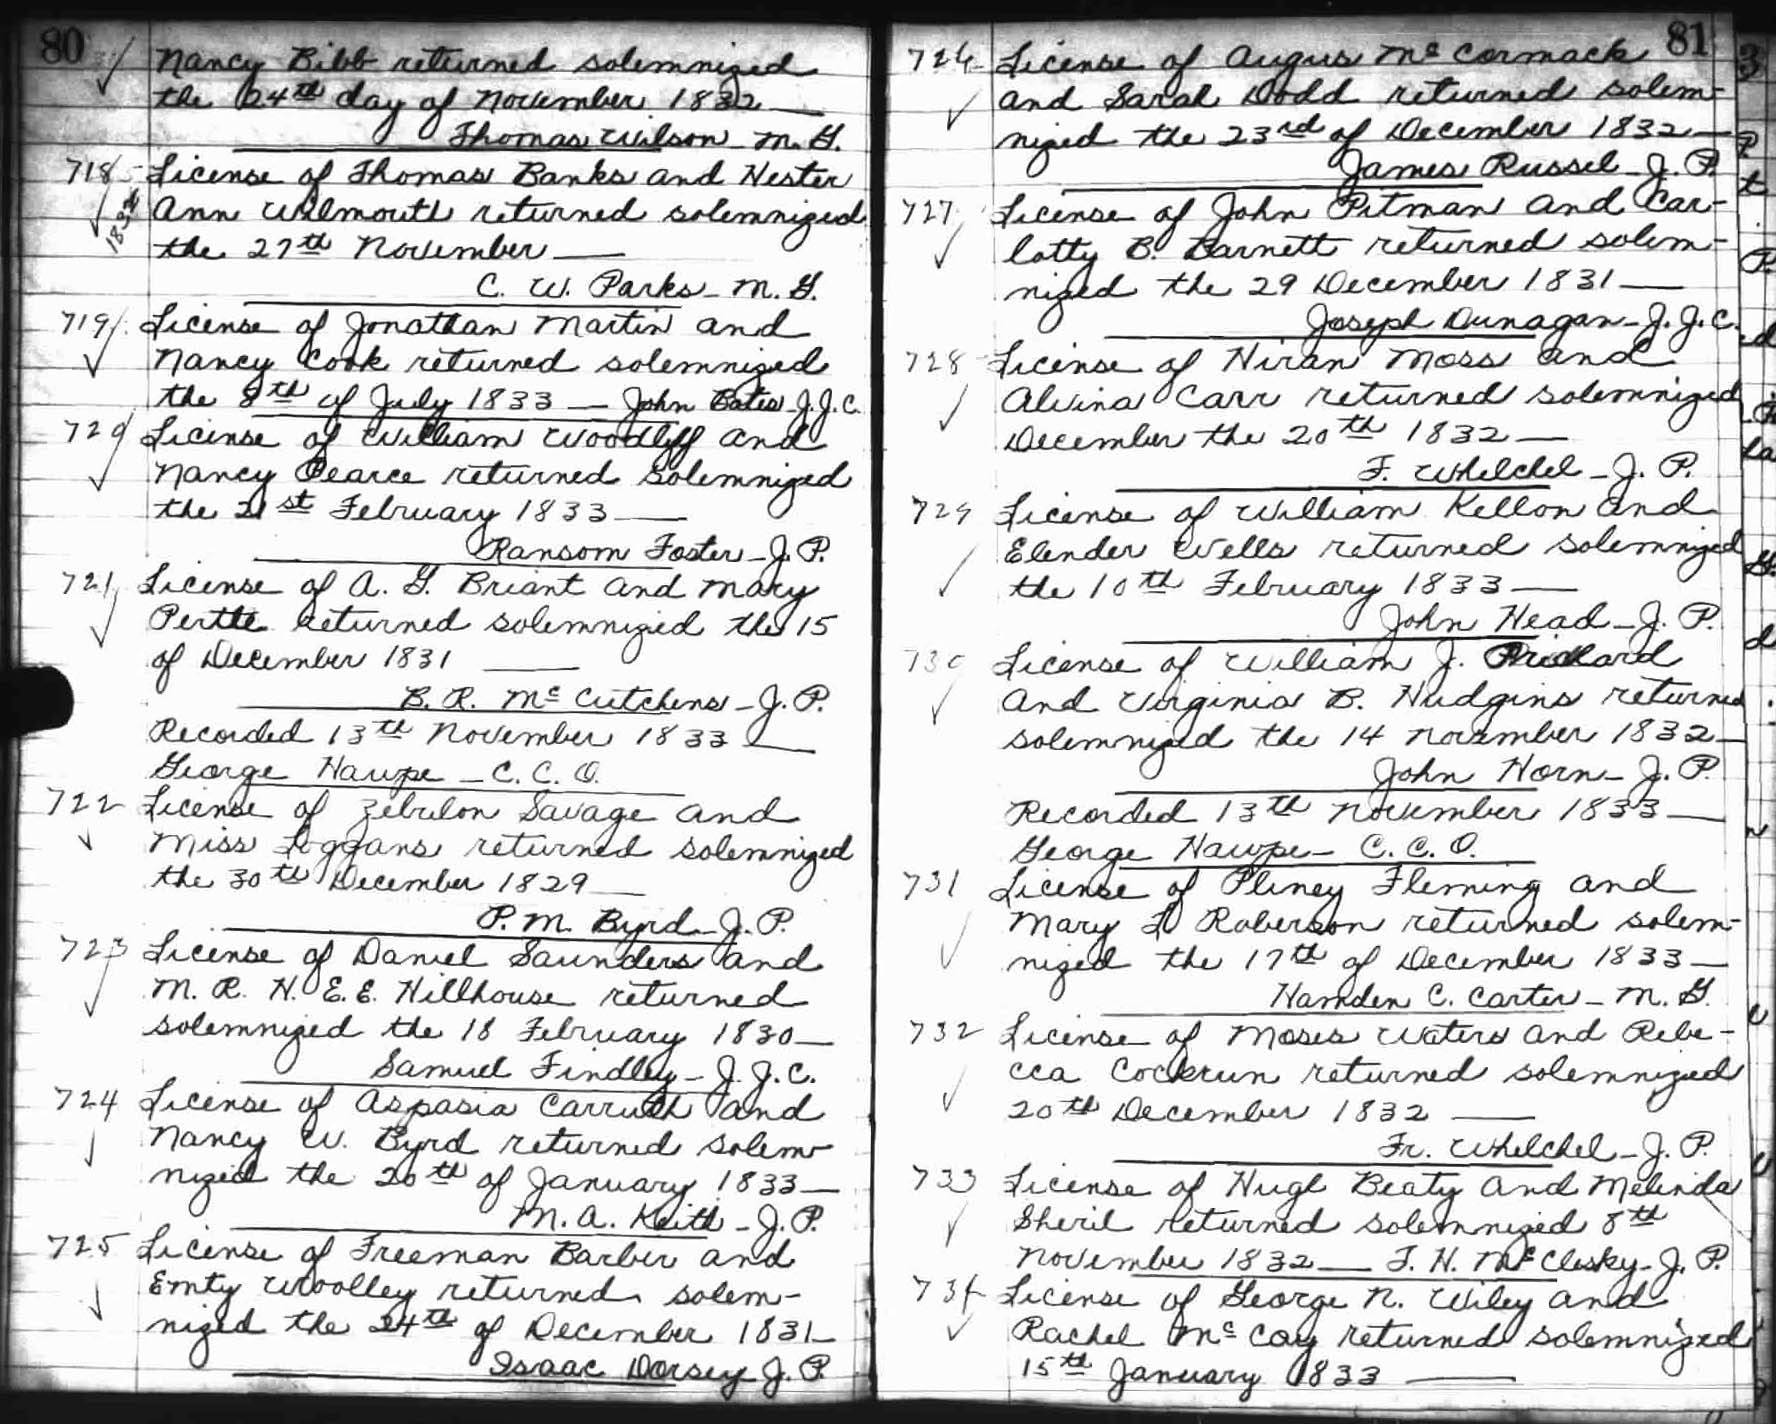 80
Nancy Bibb returned solemnized
the 24th day of November 1832
Thomas Wilson - M. G.
718 License of Thomas Banks and Hester
1832 Ann Wilmouth returned solemnized
the 27th November
C. W. Parks - M. G.
719 License of Jonathan Martin and
Nancy Cook returned solemnized
the 8th of July 1833 — John Bates - J. J. C.
720 License of William Woodliff and
Nancy Pearce returned solemnized
the 21st February 1833
Ransom Foster - J. P.
721 License of A. G. Briant and Mary
returned solemnized the 15
of December 1831
B. R. McCutchens - J. P.
Recorded 13th November 1833
George Hawpe - C. C. O.
722 License of Zebulon Savage and
Miss Loggans returned solemnized
the 30th December 1829
P. M. Byrd - J. P.
723 License of Daniel Saunders and
M. R. H. E. E. Hillhouse returned
solemnized the 18 February 1830
Samuel Findley - J. J. C.
724 License of Aspasia Carruth and
Nancy W. Byrd returned solem-
nized the 20th of January 1833
M. A. Keith - J. P.
725 License of Freeman Barber and
Emty Woolley returned solem-
nized the 24th of December 1831
Isaac Dorsey J. P.
81
726 License of Augus McCormack
and Sarah Dodd returned solem-
nized the 23rd of December 1832
James Russel - J. P.
727 License of John Pitman and Car-
lotty B. Barnett returned solem-
nized the 29 December 1831
Joseph Dunagan - J. J. C.
728 License of Hiran Moss and
Alvina Carr returned solemnized
December the 20th 1832
F. Whelchel - J. P.
729 License of William Kellon and
Elender Wells returned solemnized
the 10th February 1833
John Head - J. P.
730 License of William J.
and Virginia B. Hudgins returned
solemnized the 14 November 1832
John Horn - J. P.
Recorded 13th November 1833
George Hawpe - C. C. O.
731 License of Pliney Fleming and
Mary L Roberson returned solem-
nized the 17th of December 1833
Hamden C. Carter - M. G.
732 License of Moses Waters and Rebe-
cca Cockrun returned solemnized
20th December 1832
Fr. Whelchel - J. P.
733 License of Hugh Beaty and Melinda
Sheril returned solemnized 8th
November 1832 — F. H. McClesky - J. P.
734 License of George N. Wiley and
Rachel McCoy returned solemnized
15th January 1833